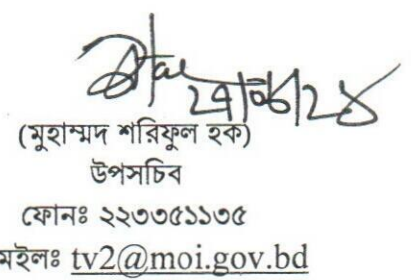 (মুহাম্মদ শরিফুল হক)
উপসচিব
ফোনঃ ২২৩৩৫১১৩৫
মইলঃ tv2@moi.gov.bd